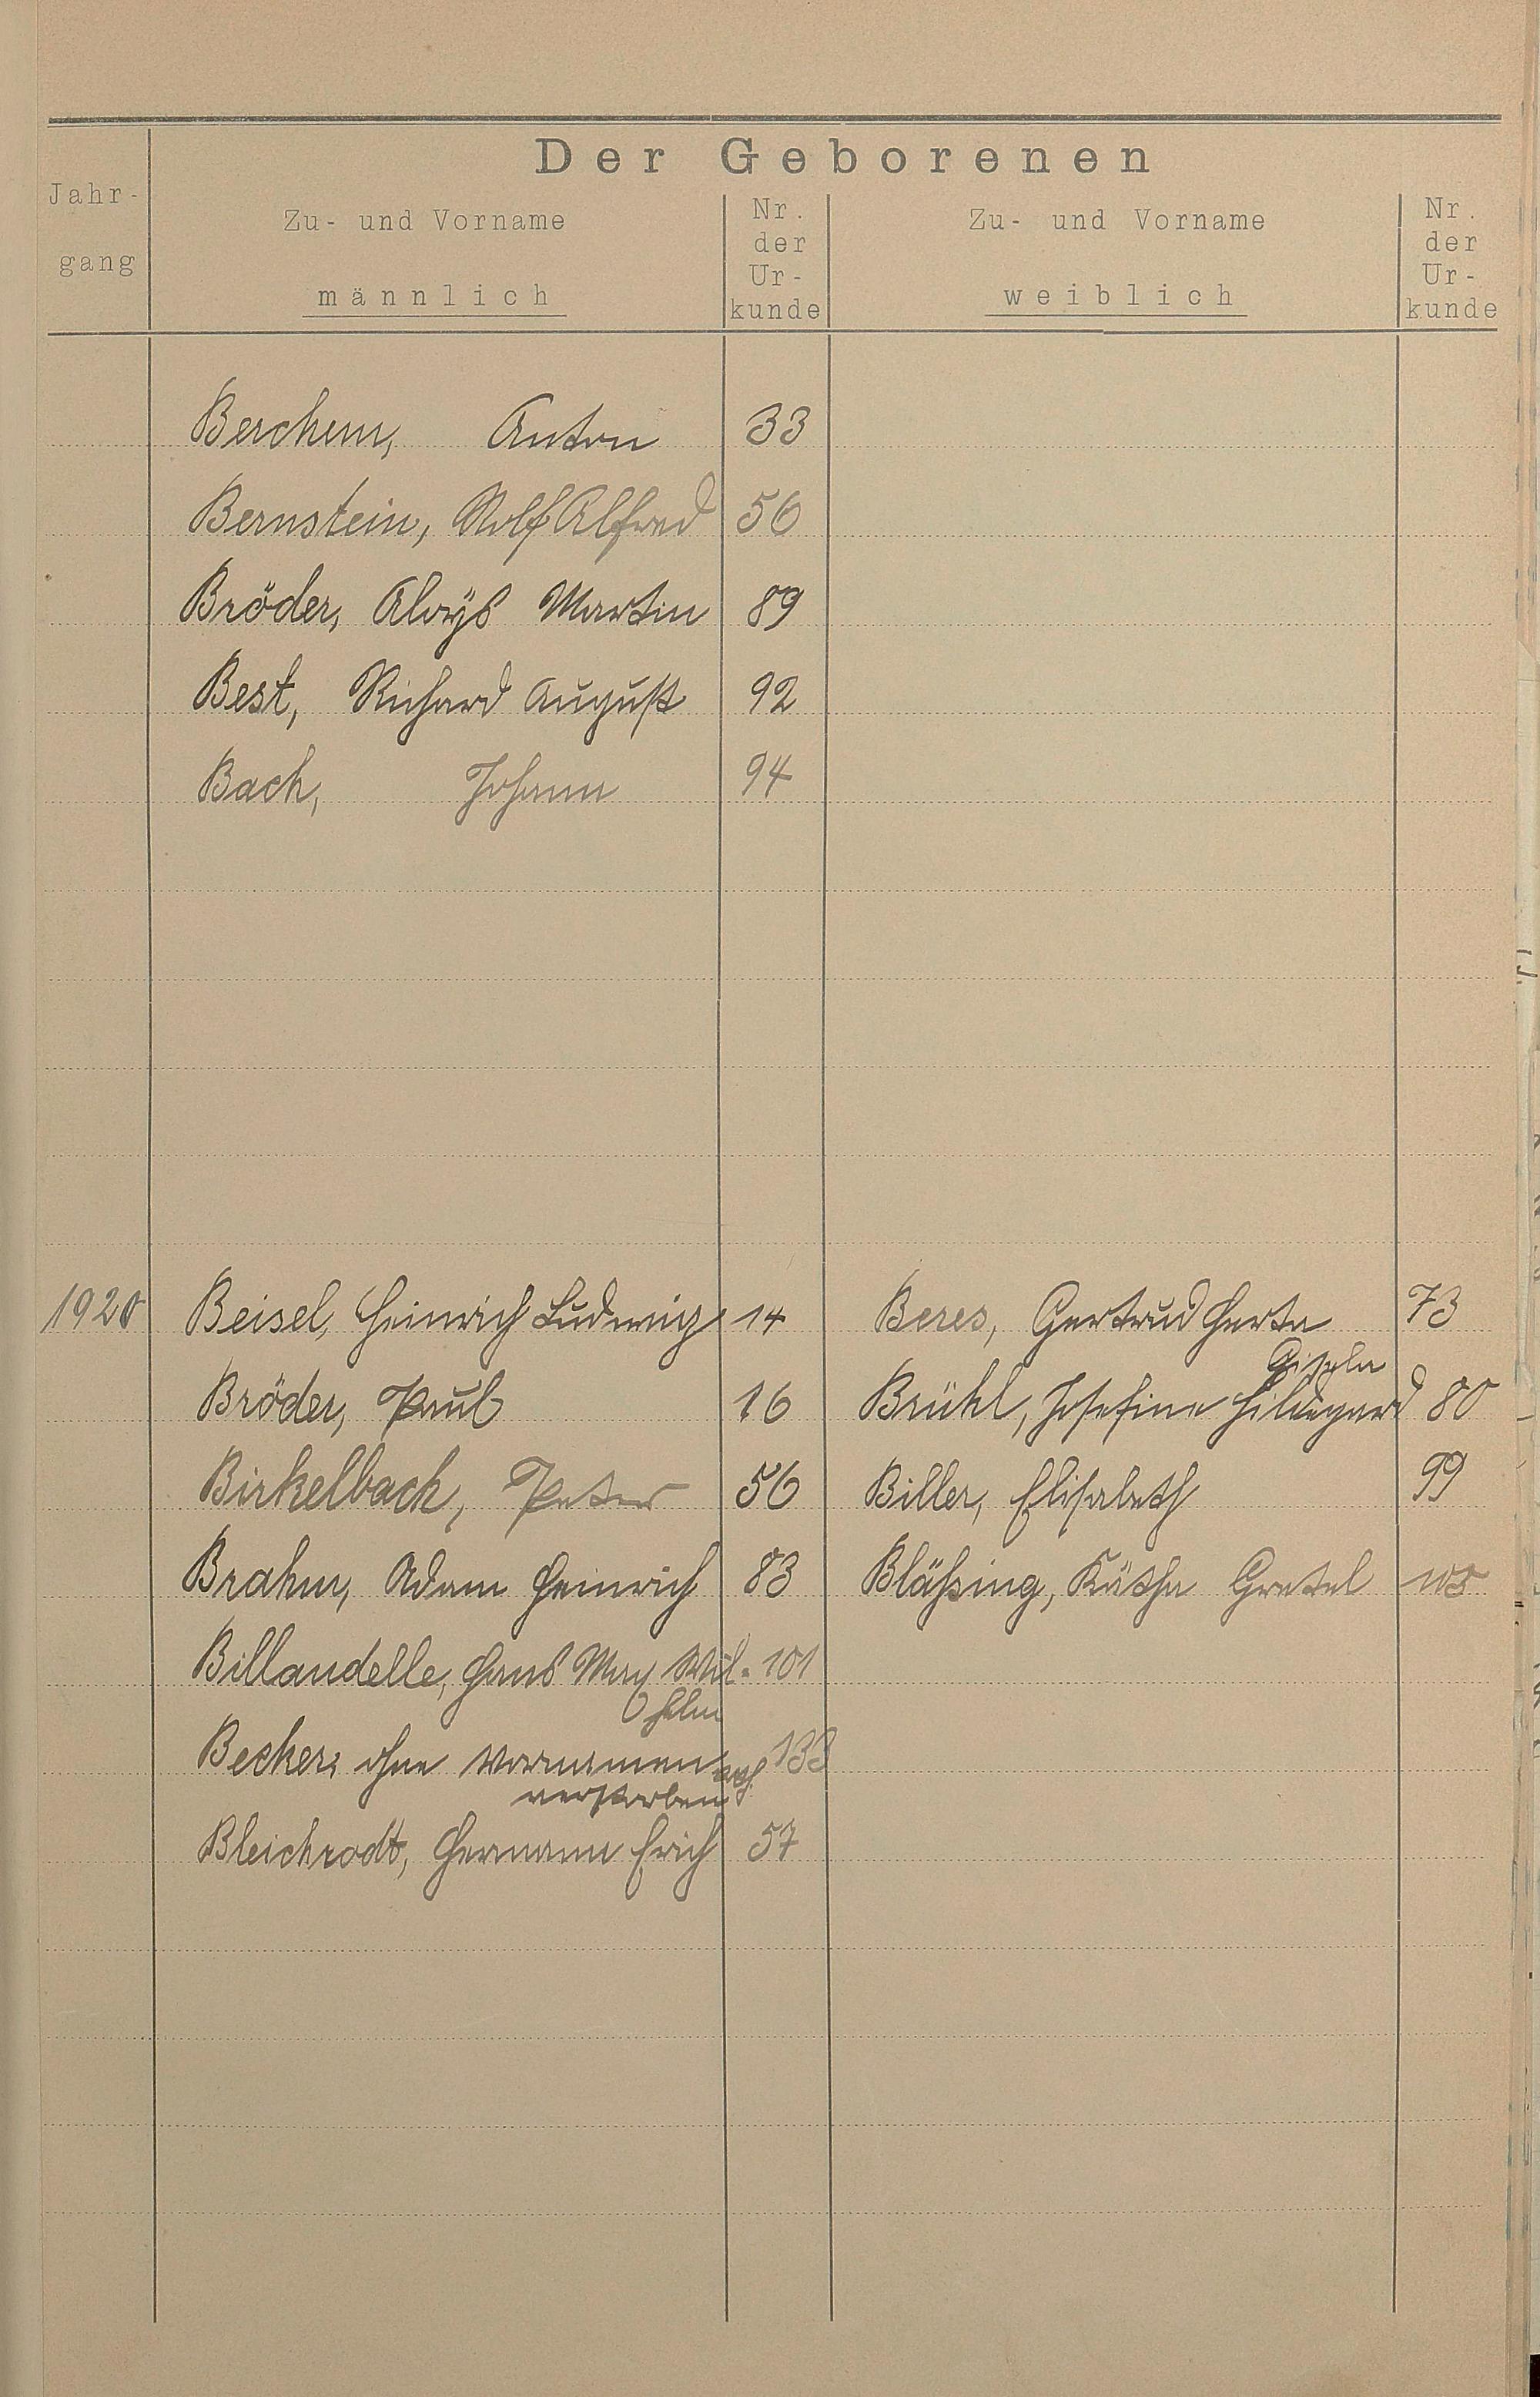 Der Geborenen
Jahr-
gang
Zu- und Vorname
männlich
Nr.
der
Ur-
kunde
Zu- und Vorname
weiblich
Nr.
der
Ur-
kunde
Berchem, Anton 33
Bernstein, Rolf Alfred 56
Bröder, Aloys Martin 89
Best, Richard August 92
Bach, Johann 94
1920 Beisel, Heinrich Ludwig 14 Beres, Gertrud Herta 73
Gisela
Bröder, Paul 16 Brühl, Josefine Hildegard 80
Birkelbach, Peter 56 Biller, Elisabeth 99
Brahm, Adam Heinrich 83 Bläßing, Käthe Gretel
Billandelle, Hans Max Wil- 101
helm
Becker, ohne Vornamen 133
verstorben
Bleichrodt, Hermann Erich 57